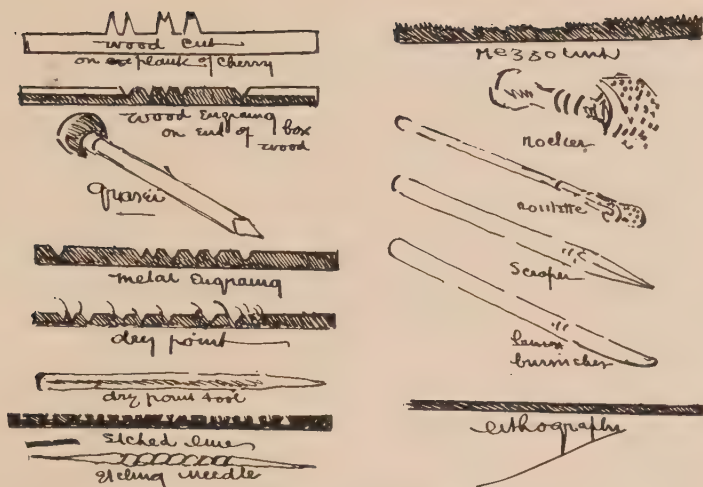 wood cut
on plank of cherry
wood Engraving
on End of box
wood
graver
metal Engraving
dry point
dry point tool
Etched line
Etching needle
Mezzotint
rocker
roulette
Scraper
burnisher
Lithography